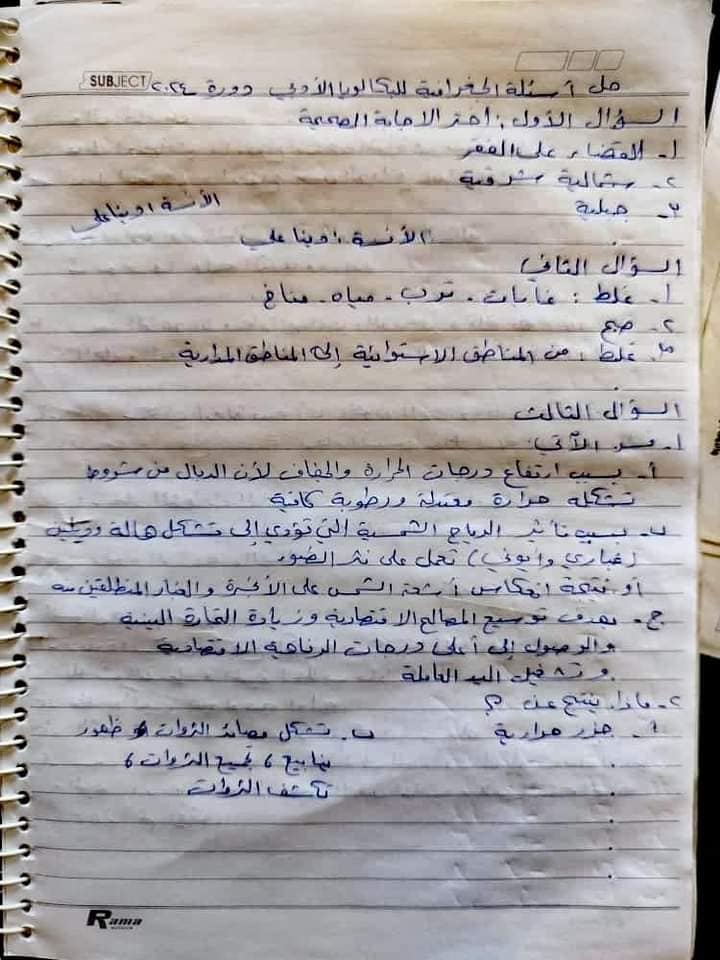 SUBJECT
حل أسئلة الجغرافية للبكالوريا الأدبي دورة ٢٠٢٤
السؤال الأول: اختر الاجابة الصحيحة
١- القضاء على الفقر
٢- شمالية شرقية
٣- جبلية
الأنسة اوبنا علي
الأنسة: اوبنا علي
السؤال الثاني
١- غلط: غابات - ترب - مياه - مناخ
٢- صح
٣- غلط: من المناطق الاستوائية إلى المناطق المدارية
السؤال الثالث
١- فسر الآتي:
أ- بسبب ارتفاع درجات الحرارة والجفاف لأن الدبال من شروط
تشكله حرارة معتدلة ورطوبة كافية
ب- بسبب تأثير الرياح الشمسية التي تؤدي إلى تشكل هالة وذيلين
(غباري وأيوني) تعمل على نثر الضوء
أو نتيجة انعكاس أشعة الشمس على الأبخرة والغبار المنطلقين منه
ج- بهدف توسيع المصالح الاقتصادية وزيادة التجارة البينية
والوصول إلى أعلى درجات الرفاهية الاقتصادية
وتشغيل اليد العاملة
٢- ماذا ينتج عن؟
أ- جزر حرارية
ب- تشكل مصائد الثروات ظهور
ينابيع، تجميع الثروات،
تكشف الثروات
Rama